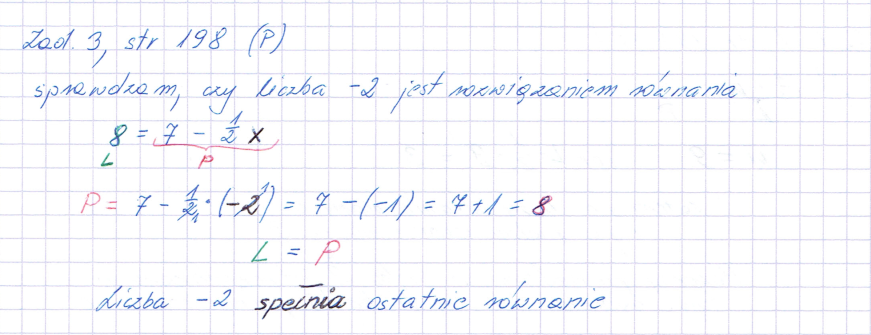 Zad. 3, str 198 (P)
sprawdzam, czy liczba -2 jest rozwiązaniem równania
8 = 7 - 1/2 x
L P
P = 7 - 1/2 · (-2) = 7 - (-1) = 7 + 1 = 8
L = P
Liczba -2 spełnia ostatnie równanie